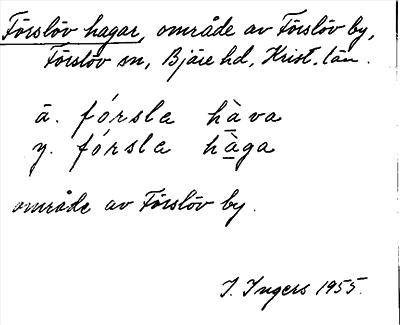 Förslöv hagar, område av Förslöv by,
Förslöv sn, Bjäre hd, Krist. län.
ä. fórsla hàva
y. fórsla hàga
område av Förslöv by.
I. Ingers 1955.